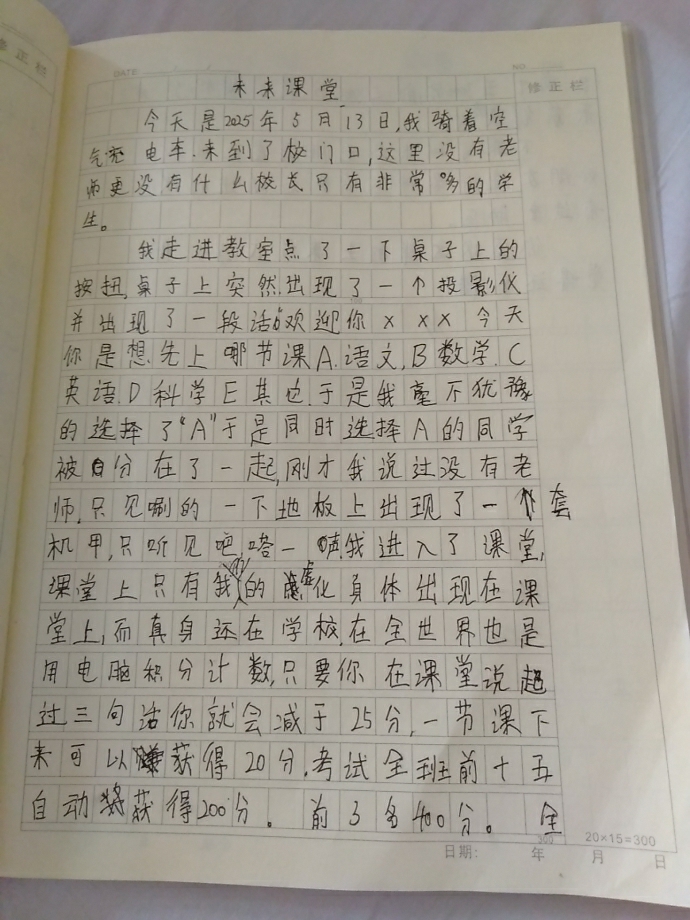 修正栏
DATE
NO
修正栏
未来课堂
今天是2025年5月13日,我骑着空
气 电车.来到了校门口,这里没有老
师更没有什么校长只有非常多的学
生。
我走进教室点了一下桌子上的
按扭,桌子上突然出现了一个投影仪
并出现了一段话:欢迎你xxx今天
你是想先上哪节课A.语文,B数学.C
英语.D科学E其他.于是我毫不犹豫
的选择了“A”于是同时选择A的同学
被分在了一起,刚才我说过没有老
师,只见唰的一下地板上出现了一套
机甲,只听见吧嗒一 我进入了课堂,
课堂上只有我的虚化身体出现在课
堂上,而真身还在学校,在全世界也是
用电脑积分计数,只要你在课堂说超
过三句话你就会减于25分,一节课下
来可以获得20分,考试全班前十五
自动获得200分。前3名400分。全
300
20×15=300
日期: 年 月 日